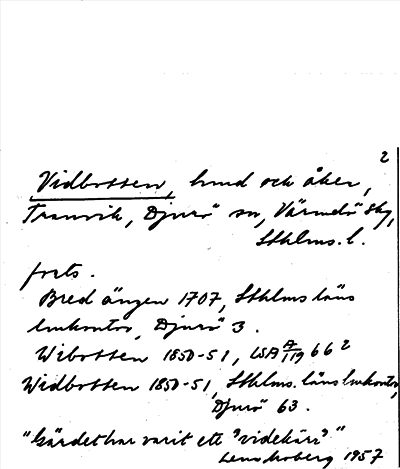 2
Vidbotten, hmd och åker,
Tranvik, Djurö sn, Värmdö skg,
Sthlms. l.
forts.
Bred ängen 1707, Sthlms läns
lmkontor, Djurö 3.
Wibotten 1850-51, LSA A/119 66 2
Widbotten 1850-51, Sthlms. läns lmkontor,
Djurö 63.
"Gärdet har varit ett 'videkärr'"
Moberg 1957